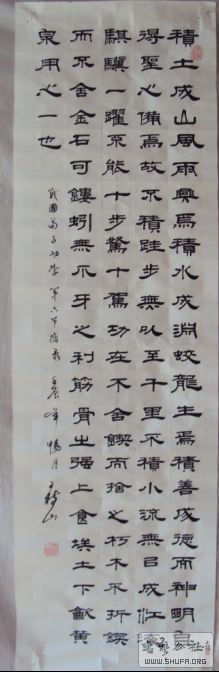 積土成山風雨興焉積水成淵蛟龍生焉積善成德而神明自
得聖心備焉故不積跬步無以至千里不積小流無已成江海
騏驥一躍不能十步駑十駕功在不舍鍥而捨之朽木不折鍥
而不舍金石可鏤蚓無爪牙之利筋骨之强上食埃土下飲黄
泉用心一也
戰國荀子勸學第六节摘录 壬辰年 暢月
書藝公社
WWW.SHUFA.ORG